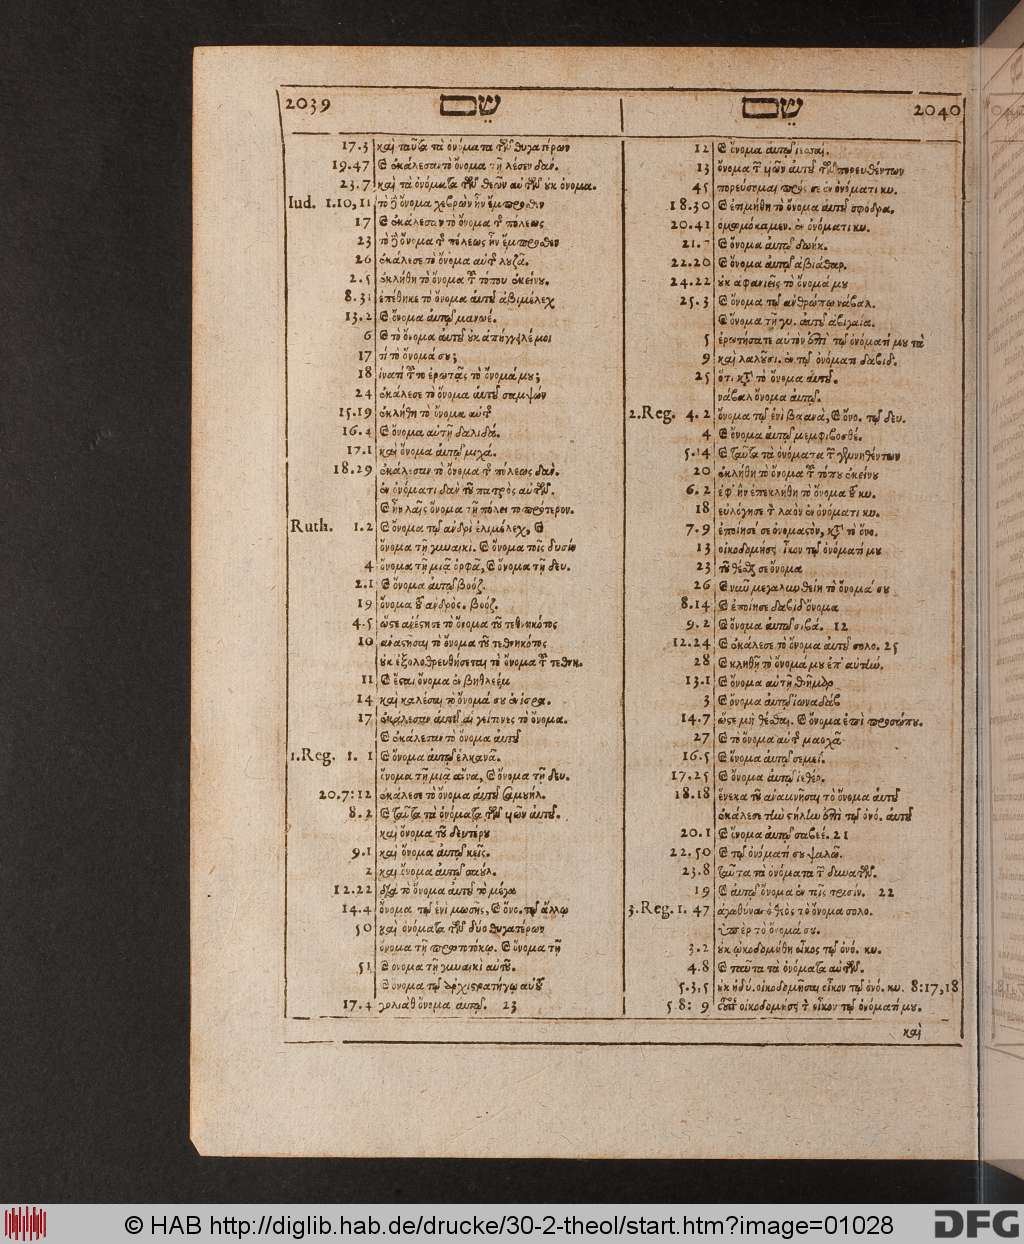 2039 שֵׁם
17.3 καὶ ταῦτα τὰ ὀνόματα τῶν θυγατέρων
19.47 καὶ ἐκάλεσαν τὸ ὄνομα τῆ λέσεν δάν.
23.7 καὶ τὰ ὀνόματα τῶν θεῶν αὐτῶν οὐκ ὀνομα.
Iud. 1.10,11 τὸ δὲ ὄνομα χεβρὼν ἦν ἔμπροσθεν
17 καὶ ἐκάλεσαν τὸ ὄνομα τῆς πόλεως
23 τὸ δὲ ὄνομα τῆς πόλεως ἦν ἔμπροσθεν
26 ἐκάλεσε τὸ ὄνομα αὐτῆς λουζᾶ.
2.5 ἐκλήθη τὸ ὄνομα τοῦ τόπου ἐκείνου.
8.31 ἐπέθηκε τὸ ὄνομα αὐτοῦ ἀβιμέλεχ
13.2 καὶ ὄνομα αὐτῷ μανωέ.
6 καὶ τὸ ὄνομα αὐτοῦ οὐκ ἀπήγγειλέ μοι
17 τί τὸ ὄνομά σου;
18 ἱνατί τοῦτο ἐρωτᾷς τὸ ὄνομά μου;
24 ἐκάλεσε τὸ ὄνομα αὐτοῦ σαμψών
15.19 ἐκλήθη τὸ ὄνομα αὐτῆς
16.4 καὶ ὄνομα αὐτῇ δαλιδά.
17.1 καὶ ὄνομα αὐτῷ μιχά.
18.29 ἐκάλεσαν τὸ ὄνομα τῆς πόλεως δάν.
ἐν ὀνόματι δὰν τοῦ πατρὸς αὐτῶν.
καὶ ἦν λαῒς ὄνομα τῇ πόλει τὸ πρότερον.
Ruth. 1.2 καὶ ὄνομα τῷ ἀνδρὶ ἐλιμέλεχ, καὶ
ὄνομα τῇ γυναικί. καὶ ὄνομα τοῖς δυσὶν
4 ὄνομα τῇ μιᾷ ὀρφᾶ, καὶ ὄνομα τῇ δευ.
2.1 καὶ ὄνομα αὐτῷ βοόζ.
19 ὄνομα τοῦ ἀνδρός. βοόζ.
4.5 ὥστε ἀνέστησε τὸ ὄνομα τοῦ τεθνηκότος
10 ἀναστῆσαι τὸ ὄνομα τοῦ τεθνηκότος
οὐκ ἐξολοθρευθήσεται τὸ ὄνομα τοῦ τεθνη.
11 καὶ ἔσται ὄνομα ἐν βηθλεέμ
14 καὶ καλέσαι τὸ ὄνομά σου ἐν ἰσρα.
17 ἐκάλεσαν αὐτοῦ αἱ γείτονες τὸ ὄνομα.
καὶ ἐκάλεσαν τὸ ὄνομα αὐτοῦ
1.Reg. 1. 1 καὶ ὄνομα αὐτῷ ἑλκανᾶ.
ὄνομα τῇ μιᾷ ἄννα, καὶ ὄνομα τῇ δευ.
20.7:12 ἐκάλεσε τὸ ὄνομα αὐτοῦ σαμουήλ.
8.2 καὶ ταῦτα τὰ ὀνόματα τῶν υἱῶν αὐτοῦ.
καὶ ὄνομα τοῦ δευτέρου
9.1 καὶ ὄνομα αὐτῷ κείς.
2 καὶ ὄνομα αὐτῷ σαούλ.
12.22 διὰ τὸ ὄνομα αὐτοῦ τὸ μέγα
14.4 ὄνομα τῷ ἑνὶ μωσῆς, καὶ ὄνο. τῷ ἄλλῳ
50 καὶ ὀνόματα τῶν δύο θυγατέρων
ὄνομα τῇ πρωτοτόκῳ. καὶ ὄνομα τῇ
51 καὶ ὄνομα τῇ γυναικὶ αὐτοῦ.
καὶ ὄνομα τῷ ἀρχιστρατήγῳ αὐτοῦ
17.4 γολιὰθ ὄνομα αὐτῷ. 23
שֵׁם 2040
12 καὶ ὄνομα αὐτῷ ἰεσσαί.
13 ὄνομα τῶν υἱῶν αὐτοῦ τῶν πορευθέντων
45 πορεύσομαι πρός σε ἐν ὀνόματι κυ.
18.30 καὶ ἐτιμήθη τὸ ὄνομα αὐτοῦ σφόδρα.
20.41 ὀμωμόκαμεν. ἐν ὀνόματι κυ.
21.7 καὶ ὄνομα αὐτῷ δωήκ.
22.20 καὶ ὄνομα αὐτῷ ἀβιάθαρ.
24.22 οὐκ ἀφανιεῖς τὸ ὄνομά μου
25.3 καὶ ὄνομα τῷ ἀνθρώπῳ νάβαλ.
καὶ ὄνομα τῇ γυ. αὐτοῦ ἀβιγαία.
5 ἐρωτήσατε αὐτὸν ἐπὶ τῷ ὀνόματί μου τὰ
9 καὶ λαλοῦσι. ἐν τῷ ὀνόματι δαβίδ.
25 ὅτι κατὰ τὸ ὄνομα αὐτοῦ.
νάβαλ ὄνομα αὐτῷ.
2.Reg. 4.2 ὄνομα τῷ ἑνὶ βαανά, καὶ ὄνο. τῷ δευ.
4 καὶ ὄνομα αὐτῷ μεμφιβοσθέ.
5.14 καὶ ταῦτα τὰ ὀνόματα τῶν γεννηθέντων
20 ἐκλήθη τὸ ὄνομα τοῦ τόπου ἐκείνου
6.2 ἐφ᾽ ἣν ἐπεκλήθη τὸ ὄνομα τοῦ κυ.
18 εὐλόγησε τὸν λαὸν ἐν ὀνόματι κυ.
7.9 ἐποίησέ σε ὀνομαστὸν, κατὰ τὸ ὄνο.
13 οἰκοδομήσει οἶκον τῷ ὀνόματί μου
23 τοῦ θέσθαι σε ὄνομα
26 καὶ νῦν μεγαλυνθείη τὸ ὄνομά σου
8.14 καὶ ἐποίησε δαβὶδ ὄνομα
9.2 καὶ ὄνομα αὐτῷ σιβά. 12
12.24 καὶ ἐκάλεσε τὸ ὄνομα αὐτοῦ σολο. 25
28 καὶ κληθῇ τὸ ὄνομά μου ἐπ᾽ αὐτήν.
13.1 καὶ ὄνομα αὐτῇ θῆμαρ
3 καὶ ὄνομα αὐτῷ ἰωναδάβ
14.7 ὥστε μὴ θέσθαι. καὶ ὄνομα ἐπὶ προσώπου.
27 καὶ τὸ ὄνομα αὐτῆς μααχᾶ
16.5 καὶ ὄνομα αὐτῷ σεμεί.
17.25 καὶ ὄνομα αὐτῷ ἰεθέρ.
18.18 ἕνεκα τοῦ ἀναμνῆσαι τὸ ὄνομα αὐτοῦ
ἐκάλεσε τὴν στήλην ἐπὶ τῷ ὀνό. αὐτοῦ
20.1 καὶ ὄνομα αὐτῷ σαβεέ. 21
22.50 καὶ τῷ ὀνόματί σου ψαλῶ.
23.8 ταῦτα τὰ ὀνόματα τῶν δυνατῶν.
19 καὶ αὐτῷ ὄνομα ἐν τοῖς τρισίν. 22
3.Reg. 1. 47 ἀγαθύναι ὁ θεὸς τὸ ὄνομα σολο.
ὑπὲρ τὸ ὄνομά σου.
3.2 οὐκ ᾠκοδομήθη οἶκος τῷ ὀνό. κυ.
4.8 καὶ ταῦτα τὰ ὀνόματα αὐτῶν.
5.3,5 οὐκ ἠδύ. οἰκοδομῆσαι οἶκον τῷ ὀνό. κυ. 8:17,18
5.8: 9 οὗτος οἰκοδομήσει τὸν οἶκον τῷ ὀνόματί μου.
καὶ
© HAB http://diglib.hab.de/drucke/30-2-theol/start.htm?image=01028 DFG